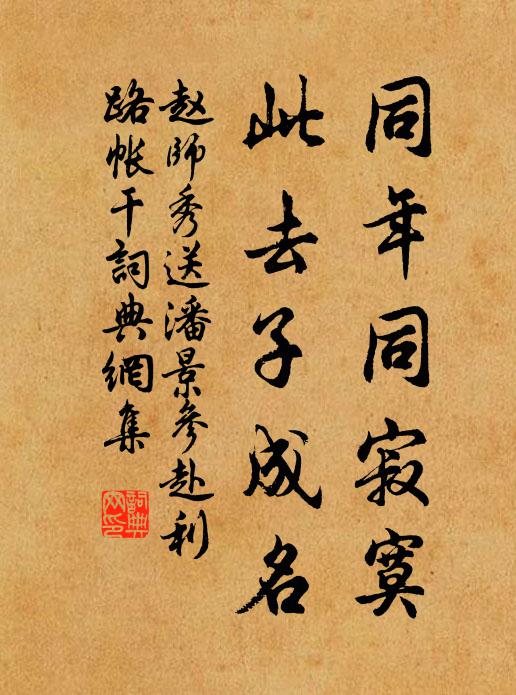 同年同寂寞
此去子成名
赵师秀送潘景参赴利
路帐干词典网集
詞典
网印